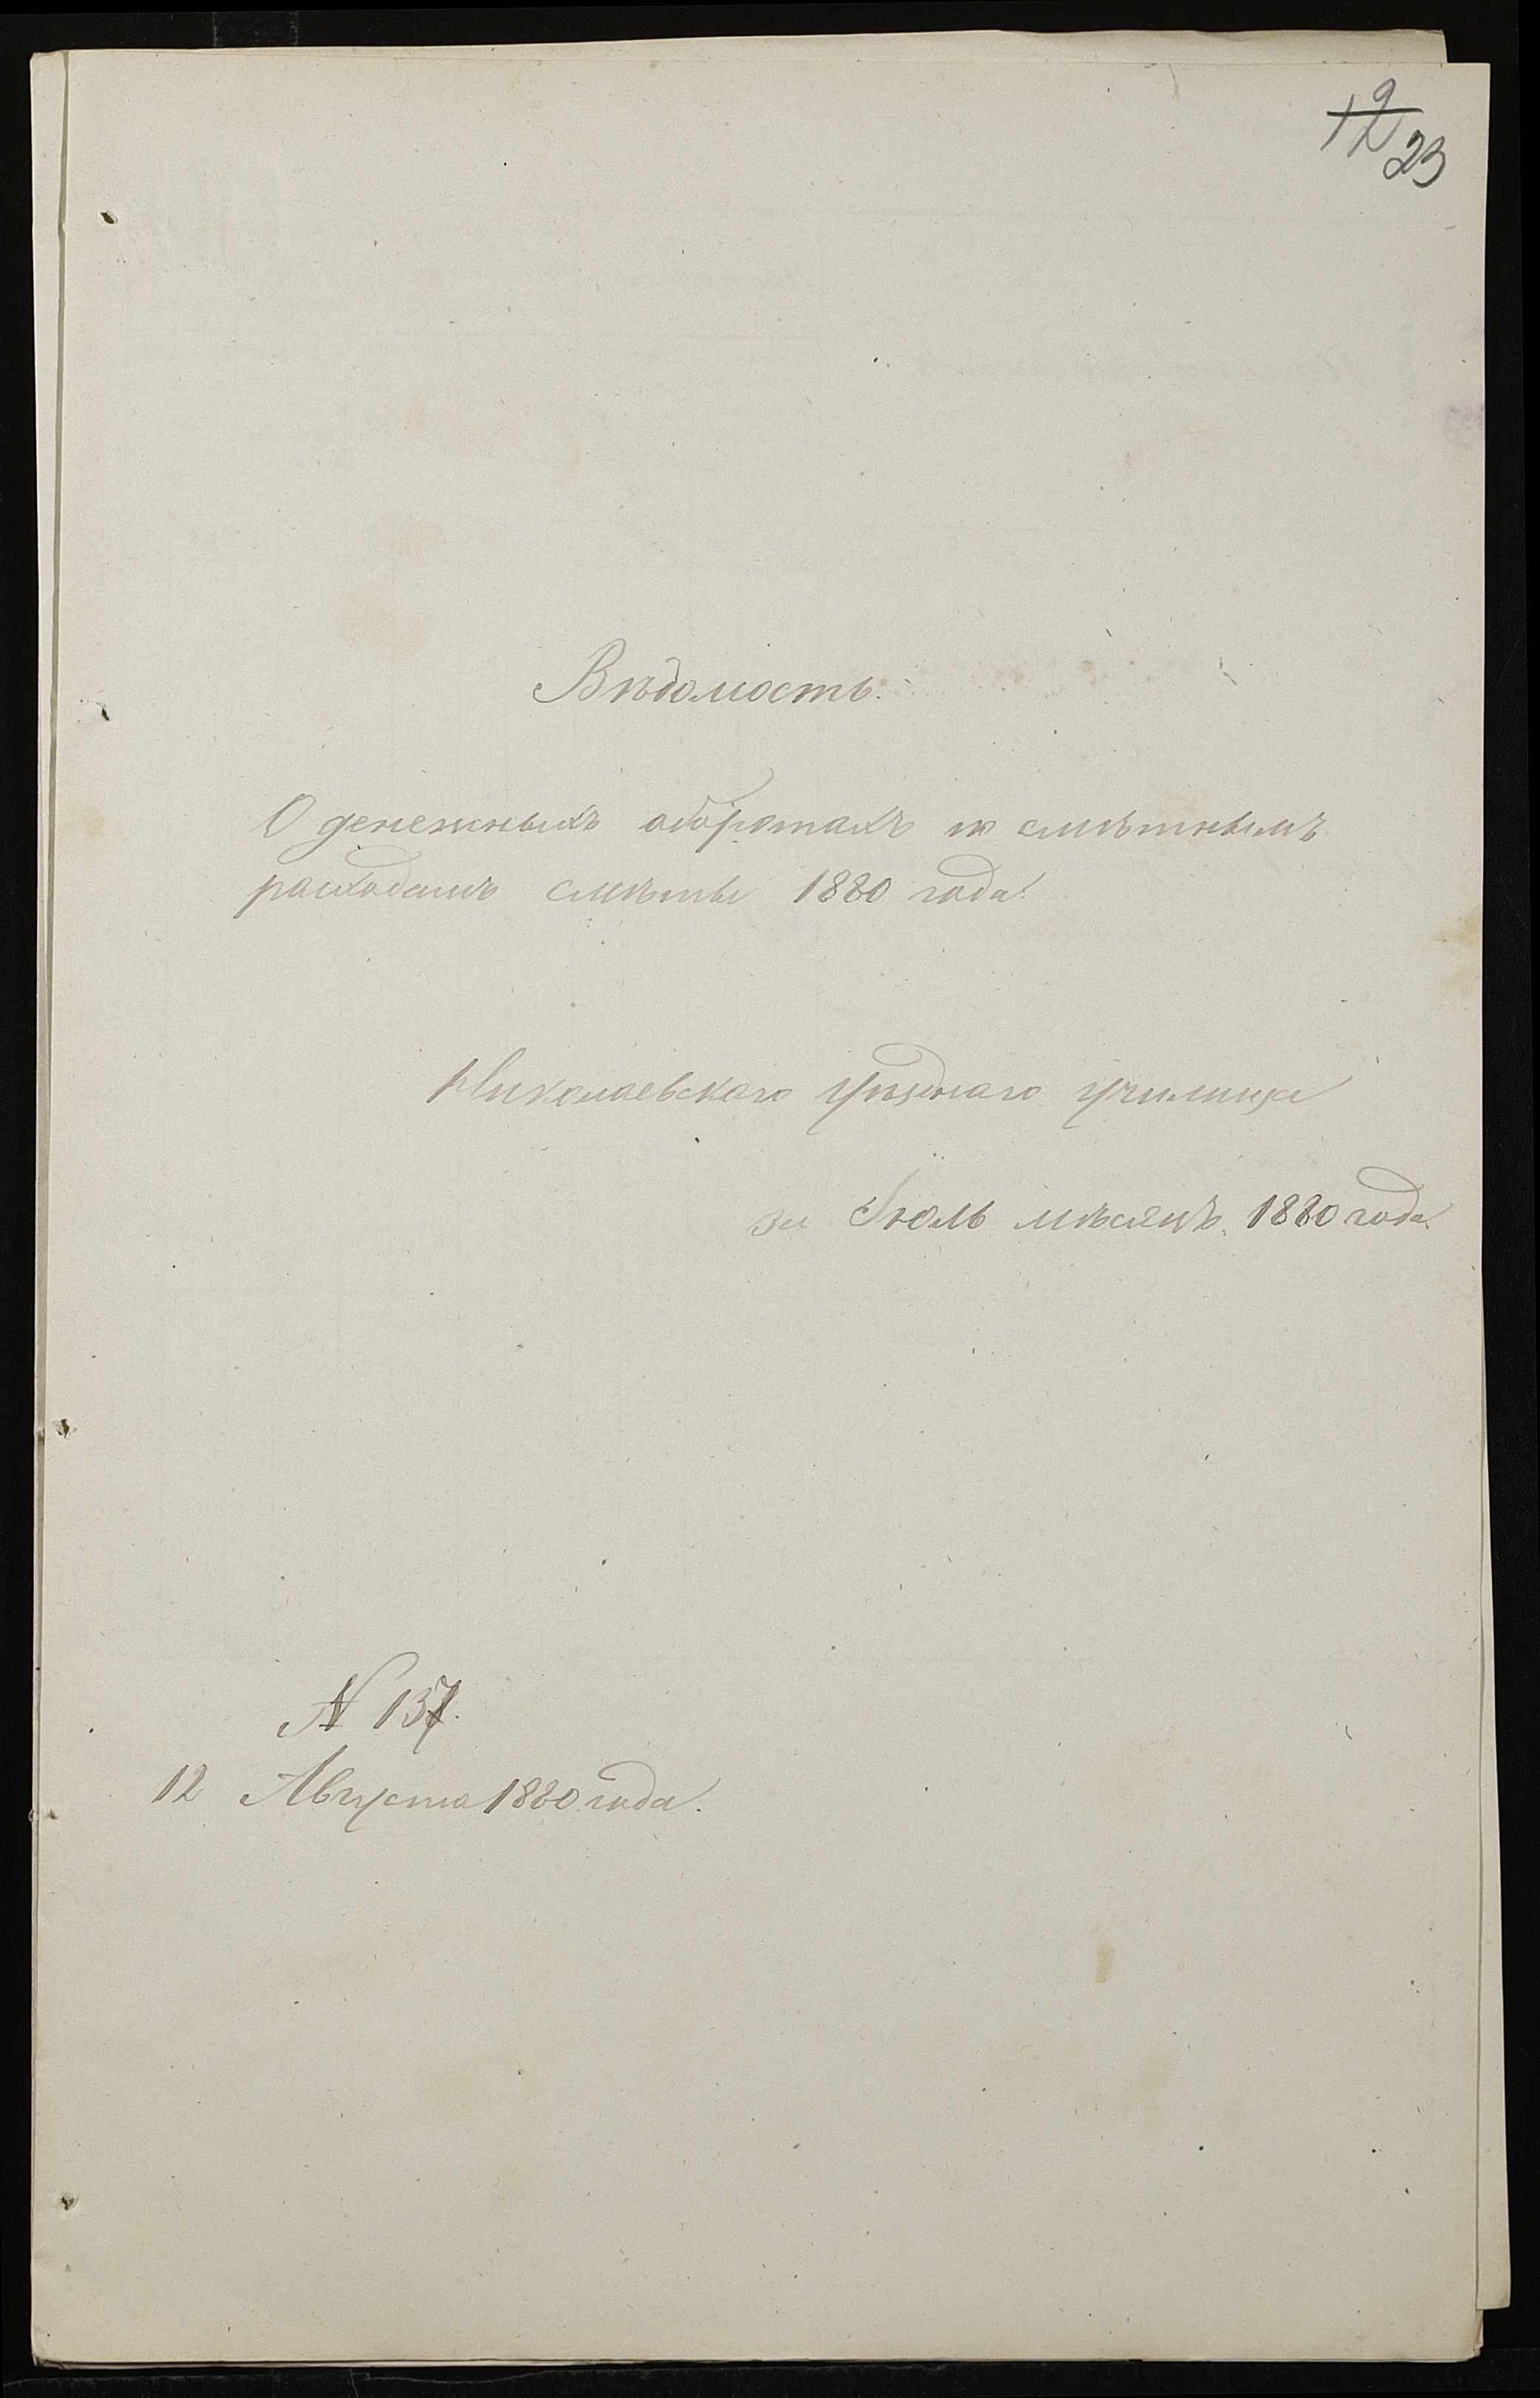 12
23
Вѣдомость.
О денежныхъ оборотахъ по смѣтнымъ
расходамъ смѣты 1880 года.
Николаевскаго Уѣзднаго Училища
за Іюль мѣсяцъ 1880 года.
N 137.
12 Августа 1880 года.